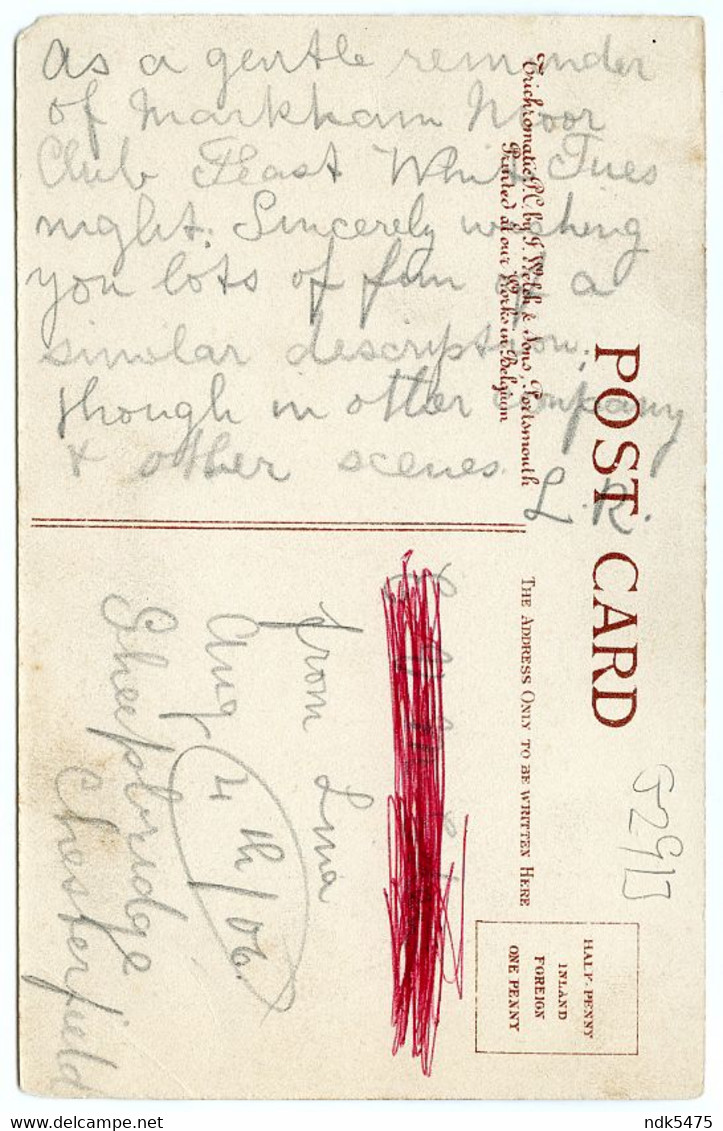 as a gentle reminder
of Markham Moor
Club Feast Whit Tues
night. Sincerely wishing
you lots of fun of a
similar description,
though in other company
& other scenes. L. R.
Trichromatic P.C. by J. Welch & Sons, Portsmouth
Printed at our Works in Belgium
POST CARD
THE ADDRESS ONLY TO BE WRITTEN HERE
HALF-PENNY
INLAND
FOREIGN
ONE PENNY
from Lina
Aug 4th/06.
Sheepbridge
Chesterfield
delcampe.net
ndk5475